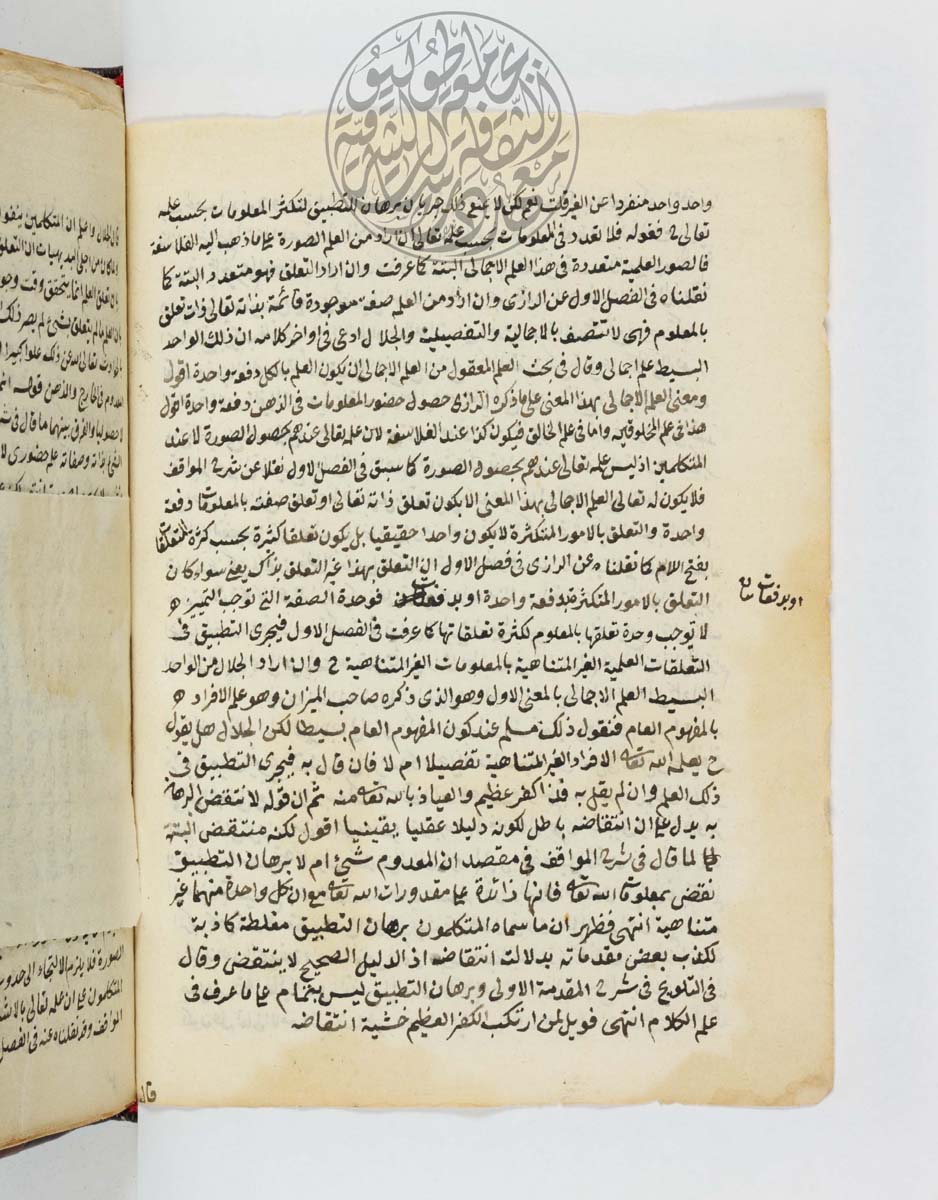 واحد واحد منفردا عن الغير قلت نعم لكن لا يمنع ذلك جريان برهان التطبيق لتكثر المعلومات بحسب علمه
تعالى ح فقوله فلا تعدد في المعلومات بحسب علمه تعالى ان اراد من العلم الصورة على ما ذهب اليه الفلاسفة
فالصور العلمية متعددة في هذا العلم الاجمالى البتة كما عرفت وان اراد التعلق فهو متعدد البتة كما
نقلناه في الفصل الاول عن الرازى وان اراد من العلم صفة موجودة قائمة بذاته تعالى ذات تعلق
بالمعلوم فهى لا تتصف بالاجمالية والتفصيلية والجلال ادعى في اواخر كلامه ان ذلك الواحد
البسيط علم اجمالى وقال في بحث العلم المعقول من العلم الاجمالى ان يكون العلم بالكل دفعة واحدة اقول
ومعنى العلم الاجمالى بهذا المعنى على ما ذكره الرازى حصول حضور المعلومات في الذهن دفعة واحدة اقول
هذا في علم المخلوقين واما في علم الخالق فيكون كذا عند الفلاسفة لان علمه تعالى عندهم بحصول الصورة لا عند
المتكلمين اذ ليس علمه تعالى عندهم بحصول الصورة كما سبق في الفصل الاول نقلا عن شرح المواقف
فلا يكون له تعالى العلم الاجمالى بهذا المعنى الا بكون تعلق ذاته تعالى او تعلق صفته بالمعلومات دفعة
واحدة والتعلق بالامور المتكثرة لا يكون واحدا حقيقيا بل يكون تعلقا كثيرة بحسب كثرة المتعلقات
بفتح اللام كما نقلناه عن الرازى في فصل الاول ان التعلق بهذا غير التعلق بذاك يعنى سواء كان
التعلق بالامور المتكثرة بدفعة واحدة او بدفعات فوحدة الصفة التى توجب التمييز
او بدفعات
لا توجب وحدة تعلقها بالمعلوم لكثرة تعلقاتها كما عرفت في الفصل الاول فيجرى التطبيق في
التعلقات العلمية الغير المتناهية بالمعلومات الغير المتناهية ح وان اراد الجلال من الواحد
البسيط العلم الاجمالى بالمعنى الاول وهو الذى ذكره صاحب الميزان وهو علم الافراد
بالمفهوم العام فنقول ذلك مسلم عند كون المفهوم العام بسيطا لكن الجلال هل يقول
ح يعلم الله تعالى الافراد الغير المتناهية تفصيلا ام لا فان قال به فيجرى التطبيق في
ذلك العلم وان لم يقل به فذا كفر عظيم والعياذ بالله تعالى منه ثم ان قوله لا نتقض البرهان
به يدل على ان انتقاضه باطل لكون دليلا عقليا يقينيا اقول لكنه منتقض البتة
لما قال في شرح المواقف في مقصد ان المعدوم شئ ام لا برهان التطبيق
نقض بمعلومات الله تعالى فانها زائدة على مقدورات الله تعالى مع ان كل واحدة منهما غير
متناهية انتهى فظهر ان ما سماه المتكلمون برهان التطبيق مغلطة كاذبة
لكذب بعض مقدماته بدلالت انتقاضه اذ الدليل الصحيح لا ينتقض وقال
في التلويح في شرح المقدمة الاولى وبرهان التطبيق ليس بتمام على ما عرف في
علم الكلام انتهى فويل لمن ارتكب الكفر العظيم خشية انتقاضه
قال